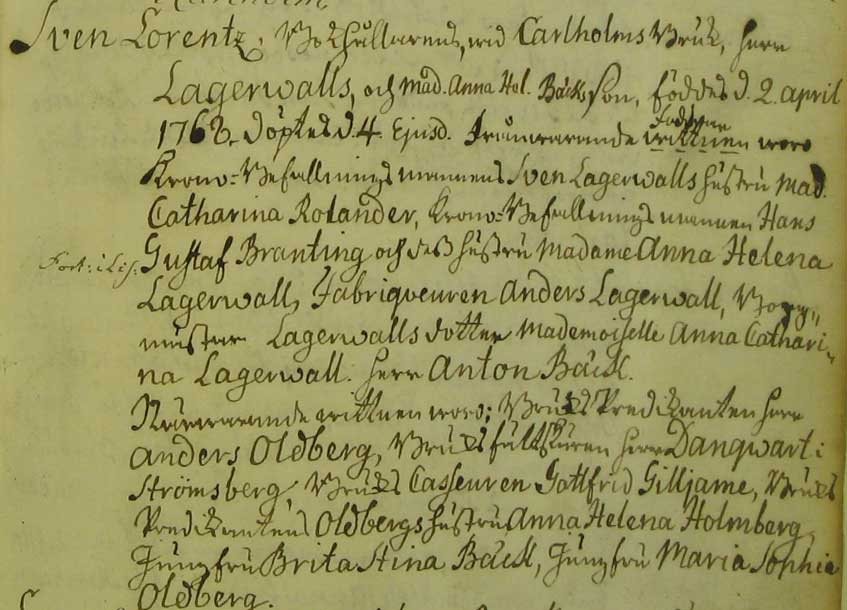 Sven Lorentz, Bokhållarens, wid Carlholms Bruk, herr
Lagerwalls, och Mad. Anna Hel. Bäcks Son, föddes d. 2. april
1768. döptes d. 4. Ejusd. Frånwarande wittnen woro
Faddrar
Krono-Befallningsmannens Sven Lagerwalls hustru Mad.
Catharina Rolander, Krono-Befallningsmannen Hans
Fort: i Gustaf Branting och deß hustru Madame Anna Helena
Lagerwall, Fabriqveuren Anders Lagerwall, Borg-
mästar Lagerwalls dotter Mademoiselle Anna Cathari-
na Lagerwall. herr Anton Bäck.
Närwarande wittnen woro: Bruks Predikanten herr
Anders Oldberg, Bruksfältskären herr Danqwart i
Strömsberg Bruks Casseuren Gottfrid Gilljame, Bruks
Predikantens Oldbergs hustru Anna Helena Holmberg,
Jungfru Brita Stina Bäck, Jungfru Maria Sophia
Oldberg.